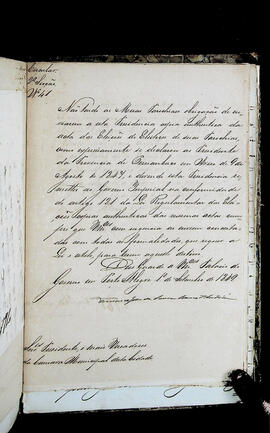 Circular
2ª Secção
Nº 41
Não tendo as Mesas Parochiaes obrigação de
a esta Presidencia copia authentica
da acta das Eleição de Eleitores de suas Parochias,
como expressamente se declarou ao Presidente
da Provincia de Pernambuco em Aviso de 9 de
Agosto de 1847, e devendo esta Presidencia
ao Governo Imperial na conformidade
do artigo 121 da Lei Regulamentar das Elei-
ções copias authenticas das mesmas actas
que Vmces com urgencia as enviem
com todas as formalidades, que requer a
Lei
Deos Guarde a Vmces Palacio do
Governo em Porto Alegre 1º de Setembro de 1849
Snrs Presidente, e mais Vereadores
da Camara Municipal desta Cidade